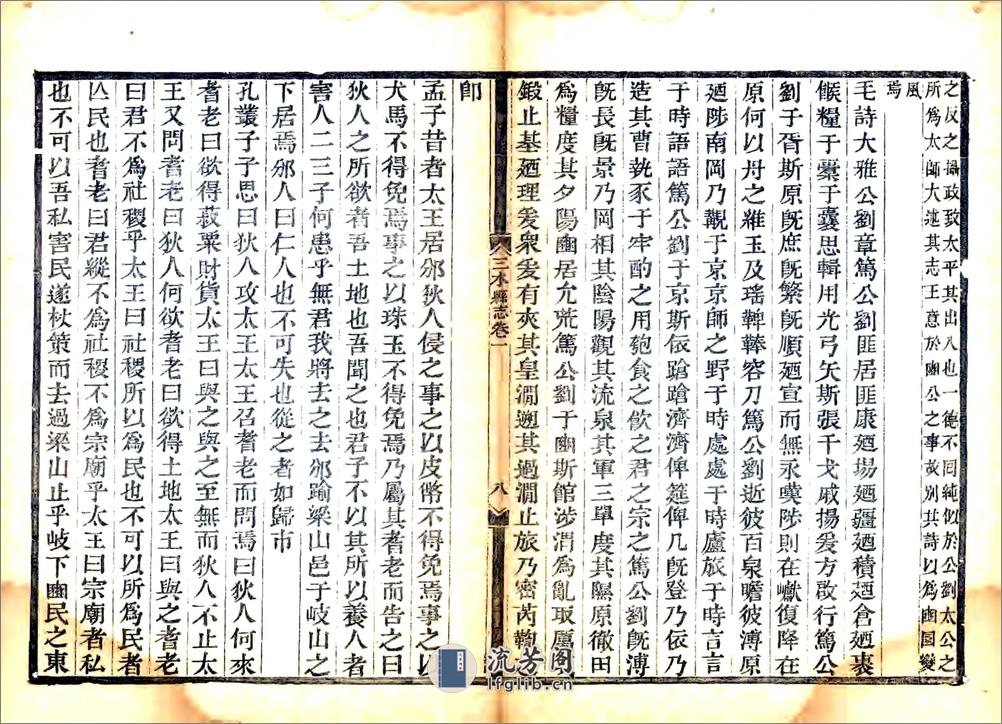 之反之攝政致太平其出入也一德不回純似於公劉太公之
所爲太師大述其志王意於豳公之事故別其詩以爲豳國變
風焉
毛詩大雅公劉章篤公劉匪居匪康廼場廼疆廼積廼倉廼裹
餱糧于橐于囊思輯用光弓矢斯張干戈戚揚爰方啟行篤公
劉于胥斯原既庶既繁既順廼宣而無永嘆陟則在巘復降在
原何以舟之維玉及瑤鞞琫容刀篤公劉逝彼百泉瞻彼溥原
廼陟南岡乃覯于京京師之野于時處處于時廬旅于時言言
于時語語篤公劉于京斯依蹌蹌濟濟俾筵俾几既登乃依乃
造其曹執豕于牢酌之用匏食之飲之君之宗之篤公劉既溥
既長既景乃岡相其陰陽觀其流泉其軍三單度其隰原徹田
爲糧度其夕陽豳居允荒篤公劉于豳斯館涉渭爲亂取厲取
鍛止基廼理爰衆爰有夾其皇澗遡其過澗止旅乃密芮鞫之
即
三水縣志卷一
八
孟子昔者太王居邠狄人侵之事之以皮幣不得免焉事之以
犬馬不得免焉事之以珠玉不得免焉乃屬其耆老而告之曰
狄人之所欲者吾土地也吾聞之也君子不以其所以養人者
害人二三子何患乎無君我將去之去邠踰梁山邑于岐山之
下居焉邠人曰仁人也不可失也從之者如歸市
孔叢子子思曰狄人攻太王太王召耆老而問焉曰狄人何來
耆老曰欲得菽粟財貨太王曰與之與之至無而狄人不止太
王又問耆老曰狄人何欲耆老曰欲得土地太王曰與之耆老
曰君不爲社稷乎太王曰社稷所以爲民也不可以所爲民者
亡民也耆老曰君縱不爲社稷不爲宗廟乎太王曰宗廟者私
也不可以吾私害民遂杖策而去過梁山止乎岐下豳民之東
流芳阁
lfglib.cn